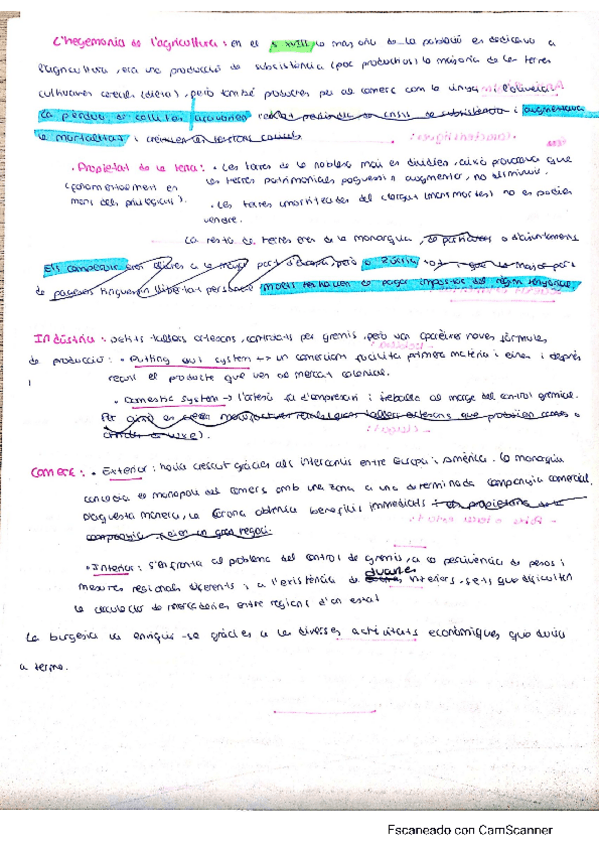 L'hegemonia de l'agricultura: en el s XVIII la major de la població es dedicava a
l'agricultura, era una producció de subsistència (pocs productes) la majoria de les terres
cultivaven cereals, però també productes per al comerç com la vinya i l'olivera
La pèrdua de collites i augmentava
la mortalitat i
• Propietat de la terra: • Les terres de la noblesa mai es dividien, això provocava que
les terres patrimonials poguessin augmentar, no disminuir.
• Les terres amortitzades del clergat (mans mortes) no es podien
vendre.
La resta de terres eren de la monarquia, o d'ajuntaments
Els camperols eren a la major part d'Europa, però a
de pagesos tinguessin llibertat personal molts havien de pagar impostos del règim senyorial
Indústria: petits tallers artesans, controlats per gremis, però van aparèixer noves fórmules
de producció: • Putting out system → un comerciant facilita primera matèria i eines i després
recull el producte que ven al mercat colonial.
• Domestic system → l'artesà fa d'empresari i treballa al marge del control gremial.
Per això es creen tallers artesans que
Comerç: • Exterior: havia crescut gràcies als intercanvis entre Europa i Amèrica. La monarquia
concedia el monopoli del comerç amb una zona a una determinada companyia comercial.
D'aquesta manera, la Corona obtenia beneficis immediats i
companyia feien un gran negoci.
• Interior: s'enfronta al problema del control de gremis, a la pervivència de pesos i
mesures regionals diferents i a l'existència de duanes interiors, fets que dificulten
la circulació de mercaderies entre regions d'un estat
La burgesia va enriquir-se gràcies a les diverses activitats econòmiques que duia
a terme.
Escaneado con CamScanner